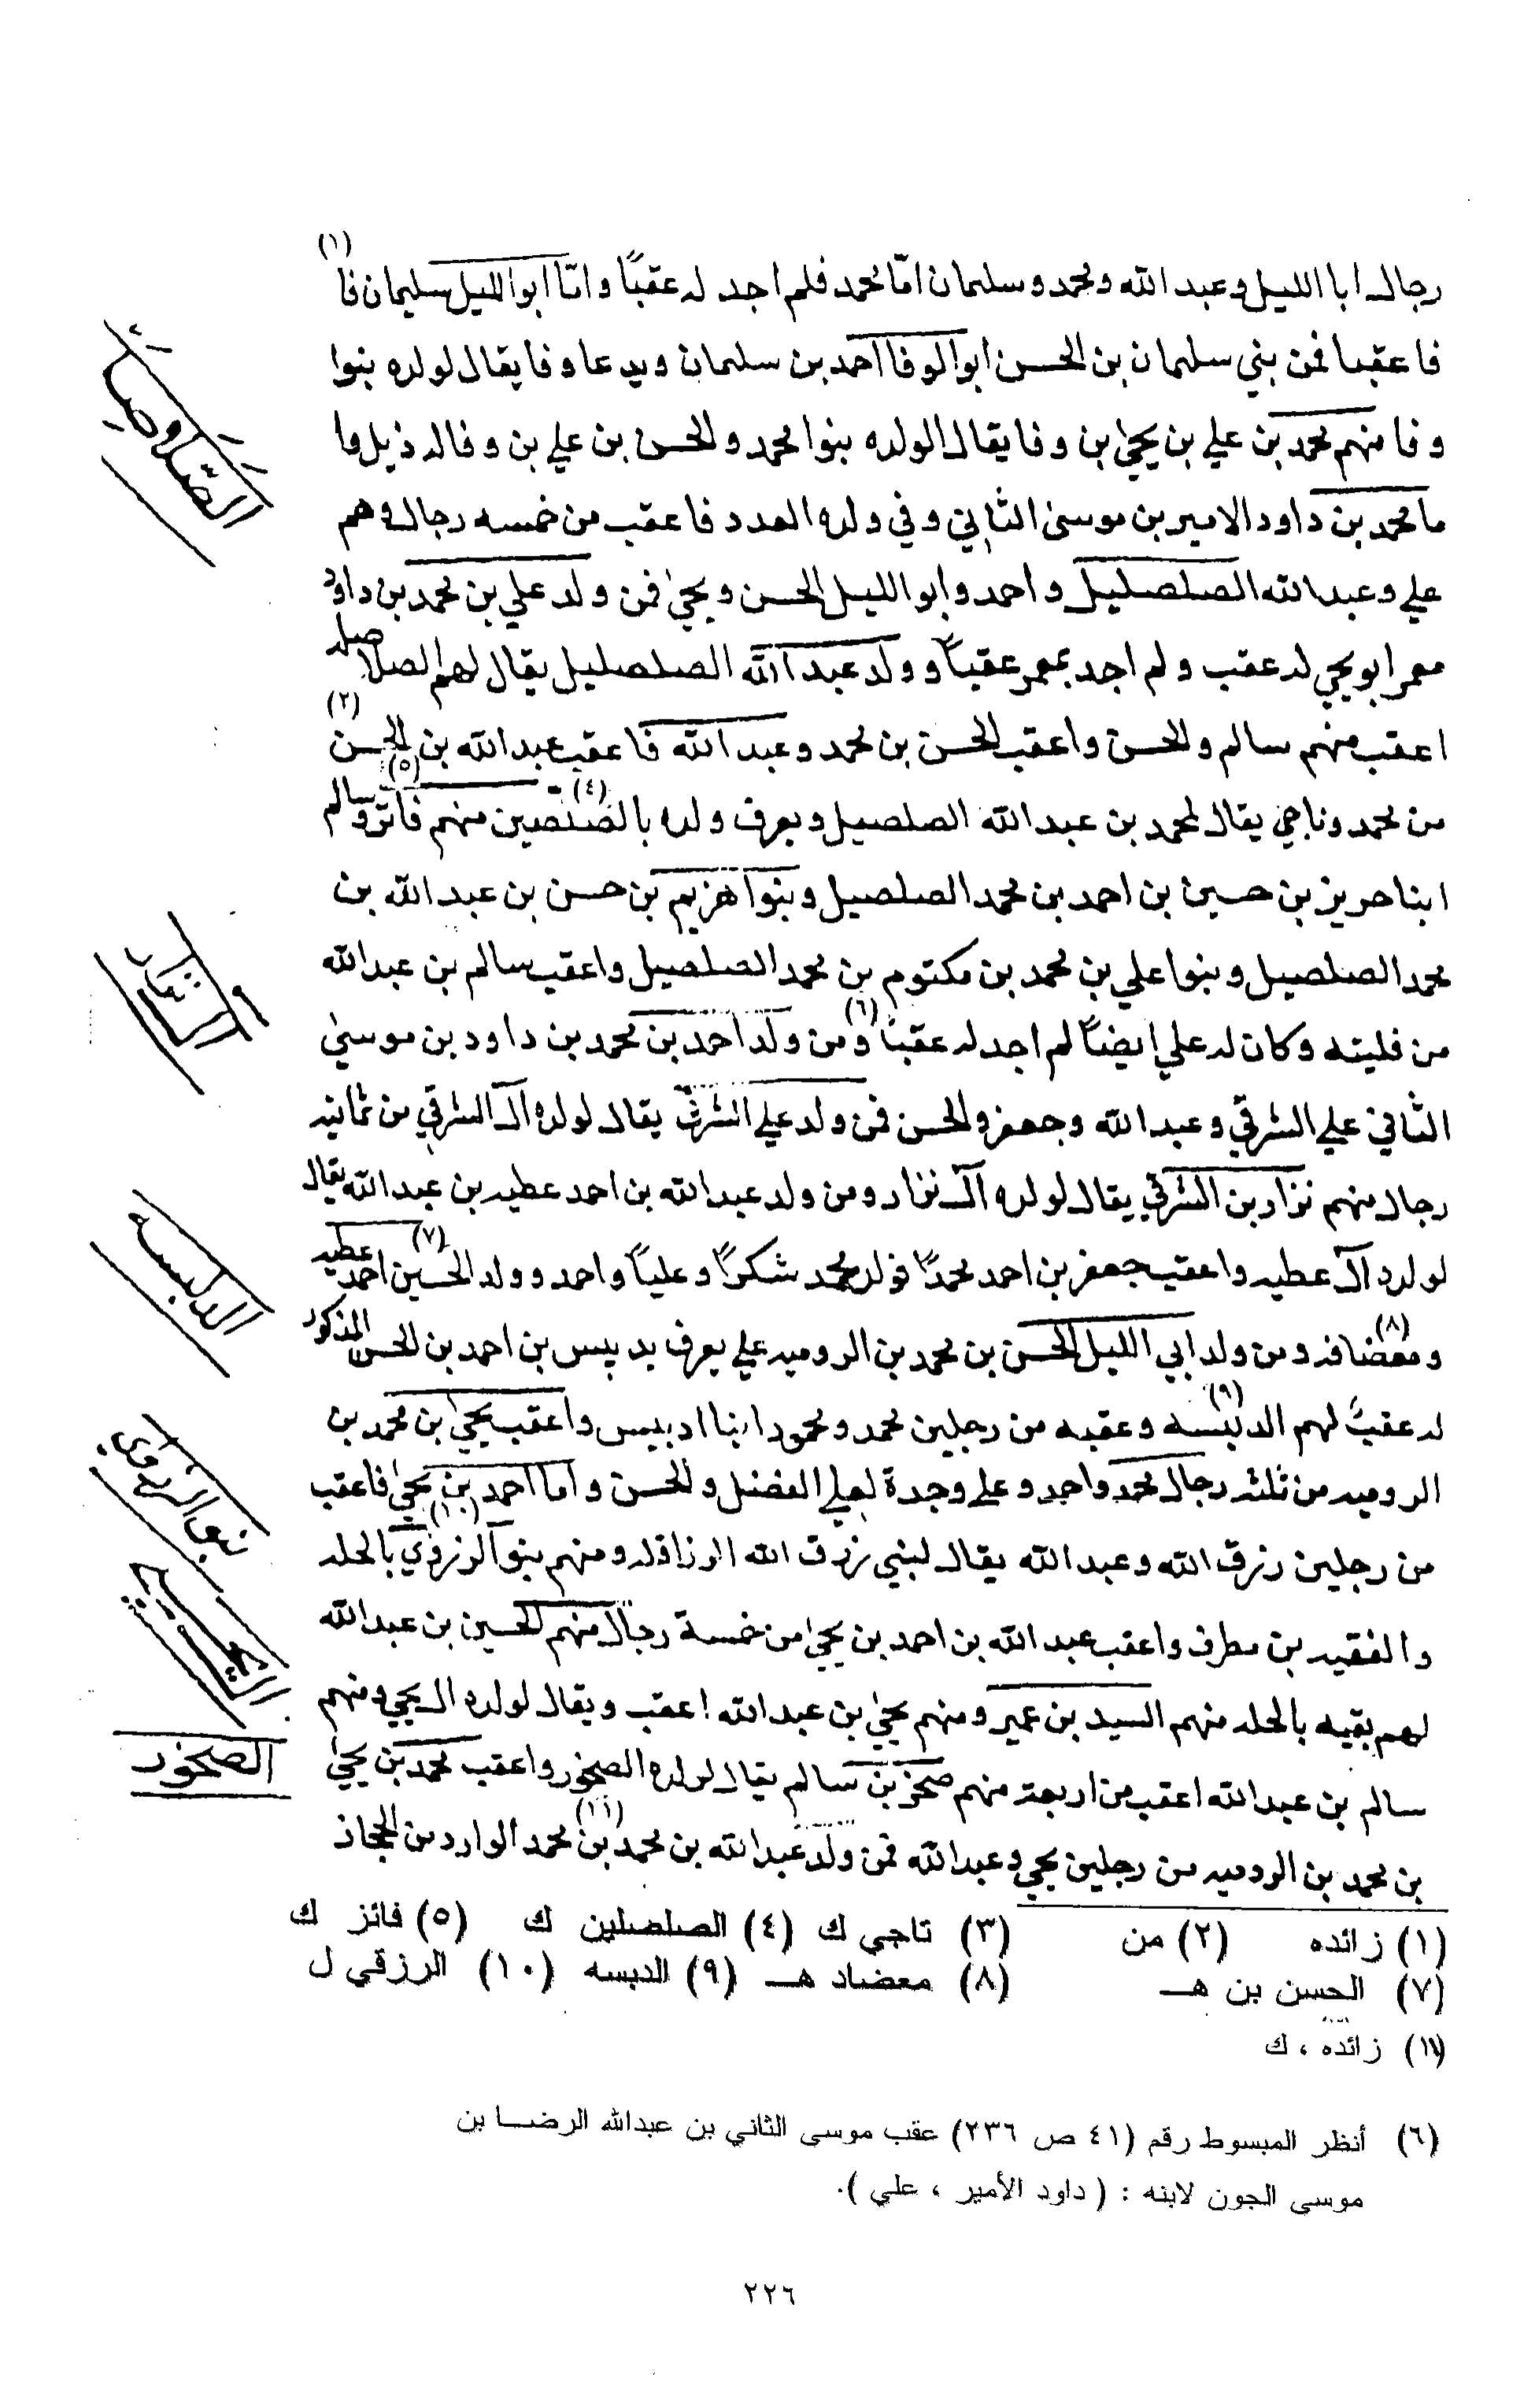 (١)
رجال ابا الليل وعبد الله ومحمد وسليمان امّا محمد فلم اجد له عقبًا وامّا ابوالليل سليمان فا
فاعقبا فمن بني سليمان بن الحسن ابوالوفا احمد بن سليمان ويدعا وفا يقال لولده بنوا
وفا منهم محمد بن علي بن يحيى بن وفا يقال لولده بنوا محمد والحسن بن علي بن وفا له ذيل وا
ما محمد بن داود الامير بن موسى الثاني وفي ولده العدد فاعقب من خمسه رجال وهم
علي وعبدالله الصلصليل واحمد وابوالليل الحسن ويحيى فمن ولد علي بن محمد بن داود
معمر ابو يحيى له عقب ولم اجد بمعمر عقباً وولد عبدالله الصلصليل يقال لهم الصلاصله
(٢)
اعقب منهم سالم والحسن واعقب الحسن بن محمد وعبد الله فاعقب عبدالله بن الحسن
(٤) (٥)
من محمد وناجي يقال لمحمد بن عبدالله الصلصيل ويعرف ولده بالصلصين منهم فاتر وسالم
ابنا حريز بن حسين بن احمد بن محمد الصلصيل وبنوا هزيم بن حسن بن عبد الله بن
محمد الصلصيل وبنوا علي بن محمد بن مكتوم بن محمد الصلصيل واعقب سالم بن عبدالله
(٦)
من فليته وكان له علي ايضاً لم اجد له عقبًا ومن ولد احمد بن محمد بن داود بن موسى
الثاني علي الشرقي وعبد الله وجعفر والحسن فمن ولد علي الشرقي يقال لولده آل الشرقي من ثمانيه
رجال منهم نزار بن الشرقي يقال لولده آل نزار ومن ولد عبدالله بن احمد عطيه بن عبدالله يقال
(٧)
لولده آل عطيه واعقب جعفر بن احمد محمدًا فولد محمد شكرًا وعلياً واحمد وولد الحسين احمد عطيه
(٨)
ومعضافه ومن ولد ابي الليل الحسن بن محمد بن الروميه علي يعرف بدبيس بن احمد بن الحسن المذكور
(٩)
له عقبٌ لهم الدبيسه وعقبه من رجلين محمد ومحمود ابنا ادبيس واعقب يحيى بن محمد بن
الروميه من ثلثه رجال محمد واحمد وعلي وجدة لعلي الفضل والحسن واما احمد بن يحيى فاعقب
(١٠)
من رجلين رزق الله وعبد الله يقال لبني رزق الله الرزاقله ومنهم بنوا الرزقوي بالحله
والفقيه بن مطرف واعقب عبد الله بن احمد بن يحيى من خمسة رجال منهم الحسين بن عبدالله
لهم بقيه بالحله منهم السيد بن عمير ومنهم يحيى بن عبدالله اعقب ويقال لولده ال يحيى ومنهم
سالم بن عبدالله اعقب من اربعة منهم صخر بن سالم يقال لولده الصخور واعقب محمد بن يحيى
(١١)
بن محمد بن الروميه من رجلين يحيى وعبدالله فمن ولد عبدالله بن محمد بن محمد الوارد من الحجاز
النزار
الدلبسه
الصخور
(١) زائده (٢) من (٣) تاجي ك (٤) الصلصلين ك (٥) فائز ك
(٧) الحسن بن هـ (٨) معضاد هـ (٩) الدبسه (١٠) الرزقي ل
(١١) زائده ، ك
(٦) أنظر المبسوط رقم (٤١ ص ٢٣٦) عقب موسى الثاني بن عبدالله الرضا بن
موسى الجون لابنه : ( داود الأمير ، علي ).
٢٢٦